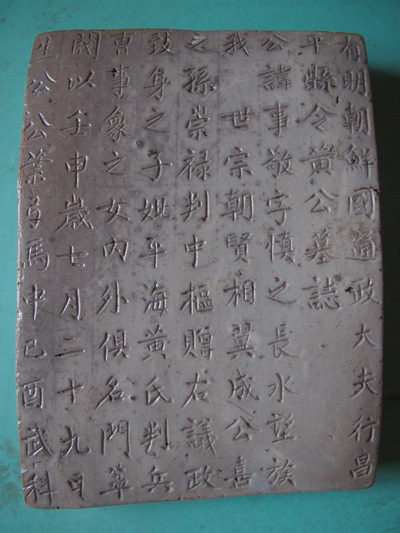 有明朝鮮國通政大夫行昌
平縣令黃公墓誌
公諱事敬字慎之長水望族
我 世宗朝賢相翼成公喜
之孫崇祿判中樞贈右議政
致身之子妣平海黃氏判兵
曺事象之女內外俱名門華
閥以壬申歲七月二十九日
生公公業弓馬中己酉武科